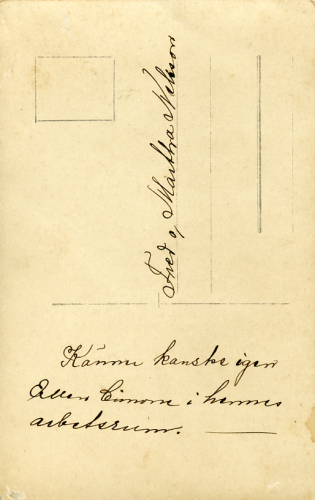 Fred o, Martha Nelson
Känner kanske igen
Ellen i hennes
arbetsrum.